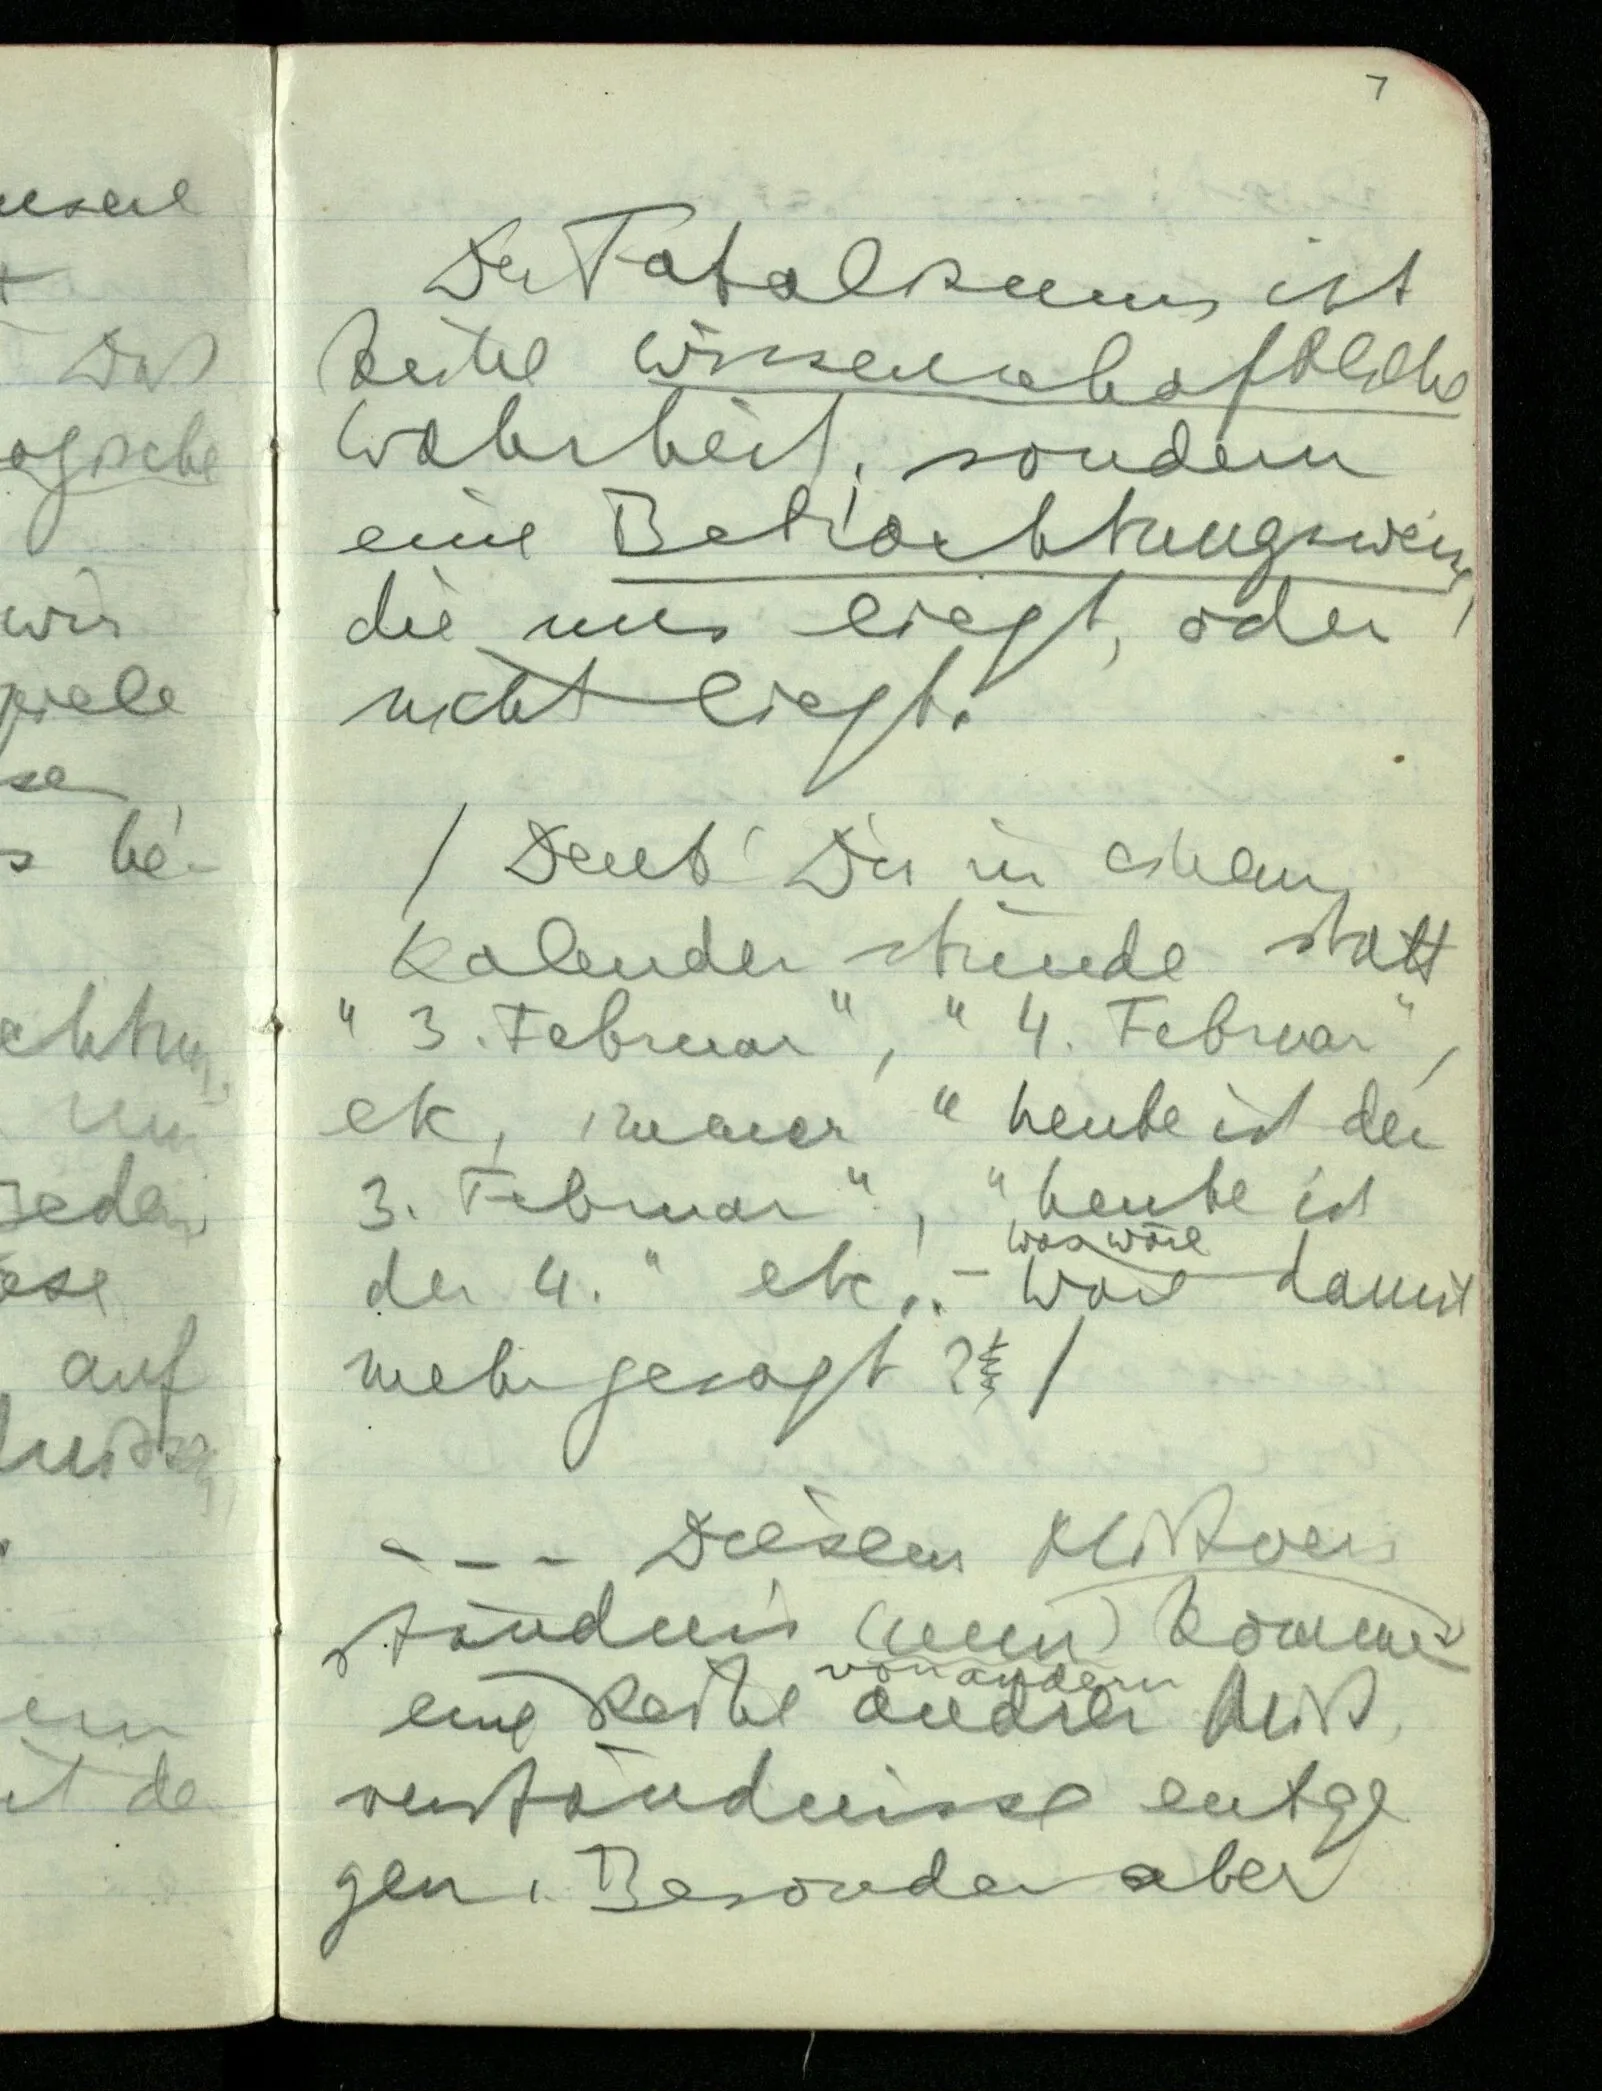 unsere
Das
logische
wir
se
be-
jeden
auf
de
7
Der Fatalismus ist
keine wissenschaftliche
Wahrheit, sondern
eine Betrachtungsweise,
die uns liegt, oder
nicht liegt.
/ Denk' Dir in einem
Kalender stünde statt
" 3. Februar ", " 4. Februar ",
etc, immer " heute ist der
3. Februar ", " heute ist
was wäre
der 4. " etc.. – Wäre damit
mehr gesagt ? /
– – – Diesem Mißver
ständnis (nun) kommt
von andern
eine Reihe andrer Miß
verständnisse entge
gen. Besonders aber